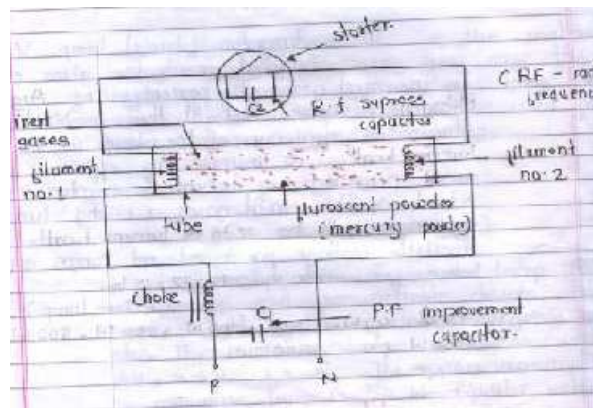 starter.
C2
R.f supress
capacitor
C RF -
inert
gases
filament
no.1
filament
no.2
tube
fluroscent powder
(mercury powder)
choke
C1
P.F improvement
capacitor.
P
N